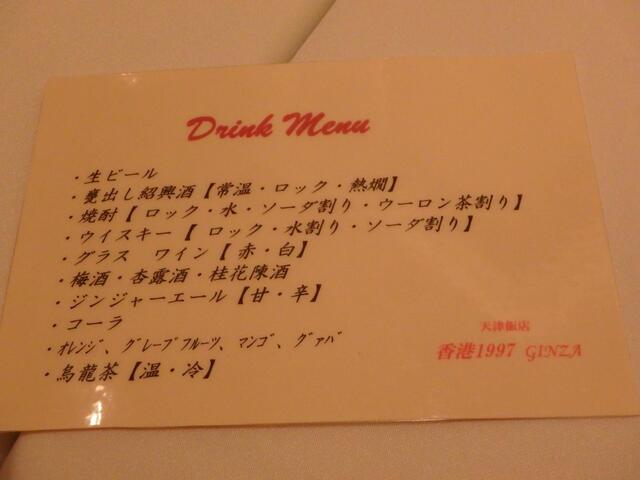 Drink Menu
・生ビール
・甕出し紹興酒【常温・ロック・熱燗】
・焼酎【 ロック・水・ソーダ割り・ウーロン茶割り】
・ウイスキー【 ロック・水割り・ソーダ割り】
・グラス ワイン【 赤・白】
・梅酒・杏露酒・桂花陳酒
・ジンジャーエール【甘・辛】
・コーラ
・ｵﾚﾝｼﾞ、ｸﾞﾚｰﾌﾟﾌﾙｰﾂ、ﾏﾝｺﾞ、ｸﾞｧﾊﾞ
・烏龍茶【温・冷】
天津飯店
香港1997 GINZA